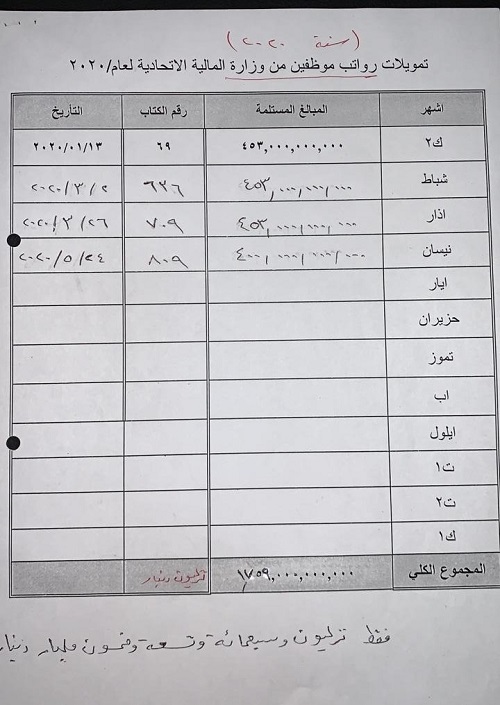 (سنة ٢٠٢٠)
تمويلات رواتب موظفين من وزارة المالية الاتحادية لعام/٢٠٢٠
اشهر المبالغ المستلمة رقم الكتاب التأريخ
ك٢ ٤٥٣,٠٠٠,٠٠٠,٠٠٠ ٦٩ ٢٠٢٠/٠١/١٣
شباط ٤٥٣,٠٠٠,٠٠٠,٠٠٠ ٦٢٦ ٢٠٢٠/٣/٢
اذار ٤٥٣,٠٠٠,٠٠٠,٠٠٠ ٧٠٩ ٢٠٢٠/٣/٢٦
نيسان ٤٠٠,٠٠٠,٠٠٠,٠٠٠ ٨٠٩ ٢٠٢٠/٥/٢٤
ايار
حزيران
تموز
اب
ايلول
ت١
ت٢
ك١
المجموع الكلي ١,٧٥٩,٠٠٠,٠٠٠,٠٠٠ ترليون دينار
فقط ترليون وسبعمائة وتسعة وخمسون مليار دينار